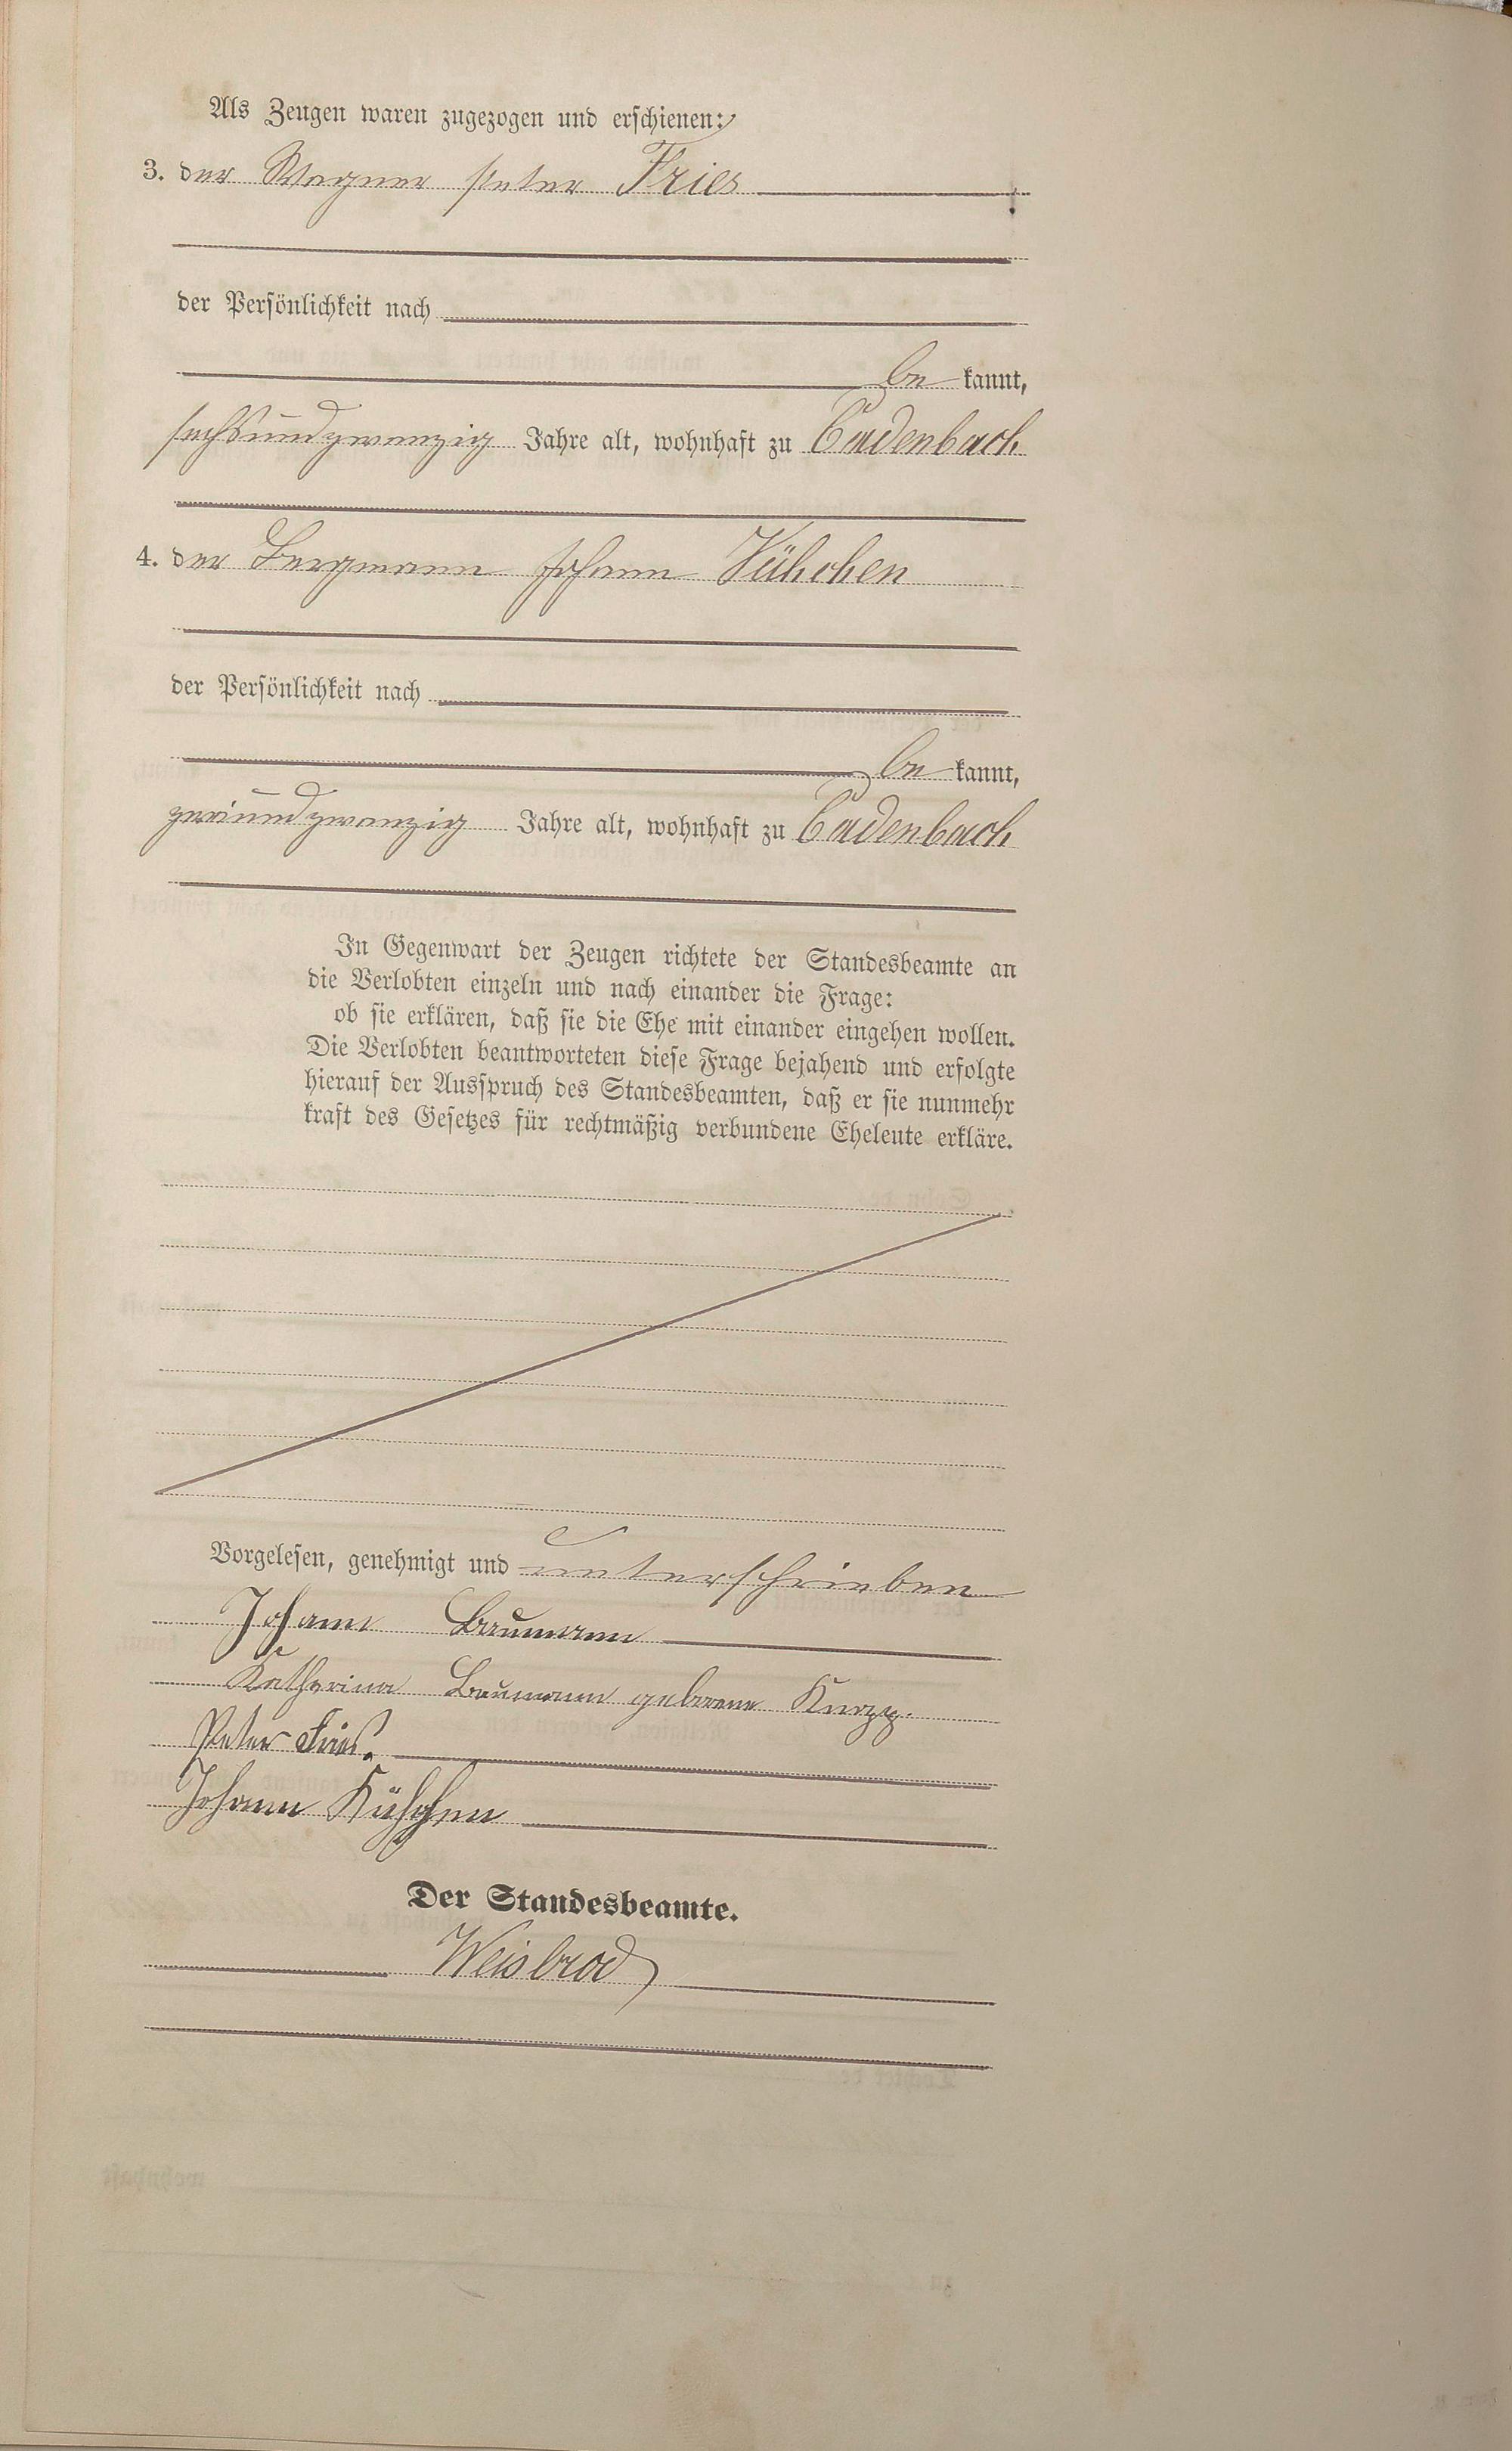 Als Zeugen waren zugezogen und erschienen:
3. der Wagner Peter Fries
der Persönlichkeit nach
be kannt,
sechsundzwanzig Jahre alt, wohnhaft zu Cadenbach
4. der Bergmann Johann Kühchen
der Persönlichkeit nach
be kannt,
zweiundzwanzig Jahre alt, wohnhaft zu Cadenbach
In Gegenwart der Zeugen richtete der Standesbeamte an
die Verlobten einzeln und nach einander die Frage:
ob sie erklären, daß sie die Ehe mit einander eingehen wollen.
Die Verlobten beantworteten diese Frage bejahend und erfolgte
hierauf der Ausspruch des Standesbeamten, daß er sie nunmehr
kraft des Gesetzes für rechtmäßig verbundene Eheleute erkläre.
Vorgelesen, genehmigt und unterschrieben
Johann Baumann
Katharina Baumann geborene Knopp.
Peter Fries.
Johann Kühchen
Der Standesbeamte.
Weisbrod